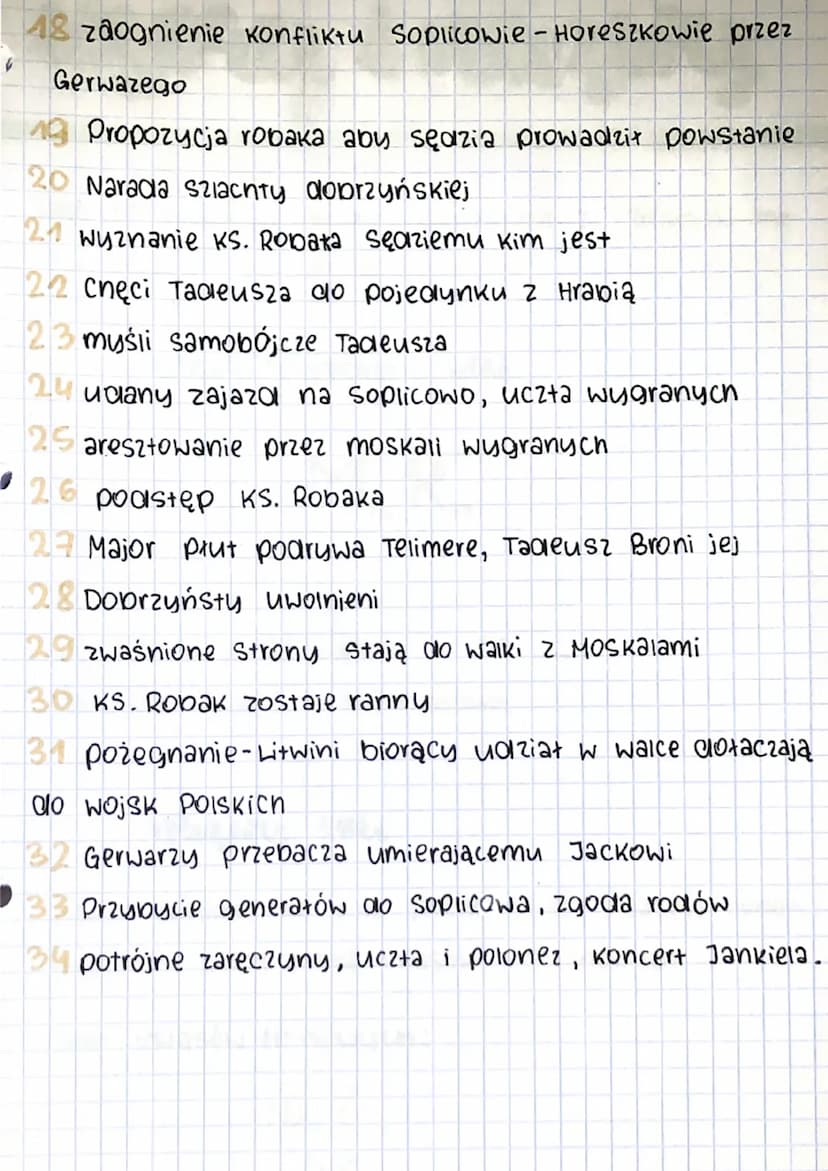 18 zaognienie konfliktu Soplicowie - Horeszkowie przez
Gerwazego
19 Propozycja robaka aby sędzia prowadził powstanie
20 Narada szlachty dobrzyńskiej
21 wyznanie ks. Robaka Sędziemu kim jest
22 Chęci Tadeusza do pojedynku z Hrabią
23 myśli samobójcze Tadeusza
24 udany zajazd na Soplicowo, uczta wygranych
25 aresztowanie przez moskali wygranych
26 podstęp ks. Robaka
27 Major Płut podrywa Telimere, Tadeusz Broni jej
28 Dobrzyństy uwolnieni
29 zwaśnione strony stają do walki z Moskalami
30 ks. Robak zostaje ranny
31 pożegnanie - Litwini biorący udział w walce dołaczają
do wojsk Polskich
32 Gerwarzy przebacza umierającemu Jackowi
33 Przybycie generałów do Soplicowa, zgoda rodów
34 potrójne zaręczyny, uczta i polonez, koncert Jankiela.